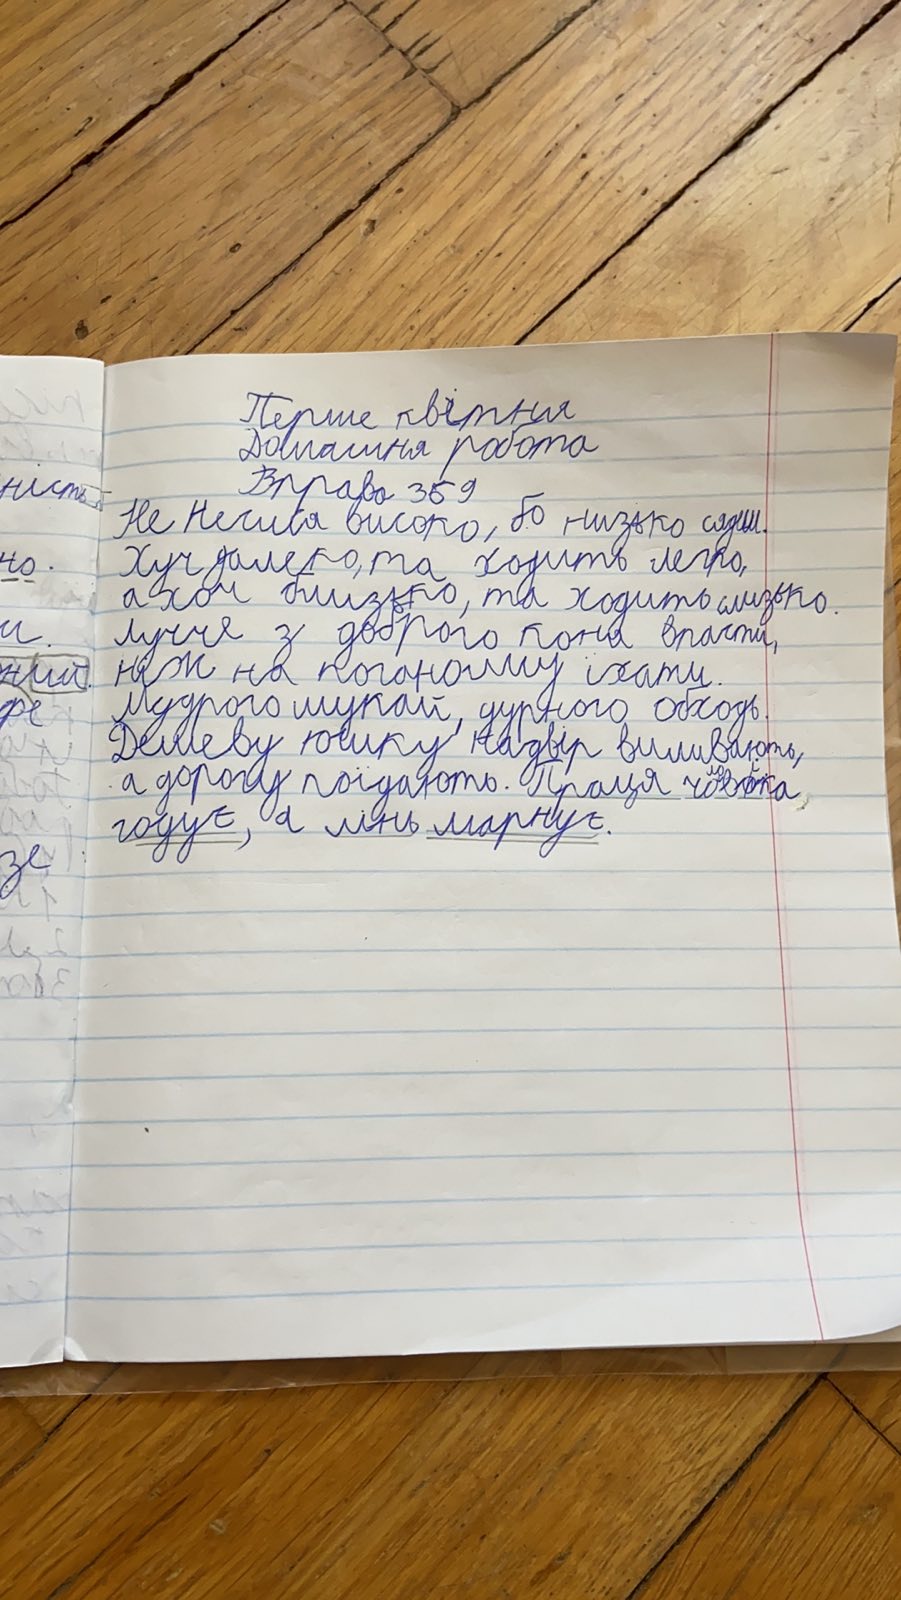 Перше квітня
Домашня робота
Вправа 359
ність
Не Несися високо, бо низько сядеш.
но.
Хуч далеко, та ходить легко,
а хоч близько, та ходить слизько.
и.
луччя з доброго коня впасти,
ний.
ніж на поганому їхати.
Мудрого шукай, дурного обходь.
Дешеву юшку надвір виливають,
а дорогу поїдають. Праця
годує, а лінь марнує.
зе